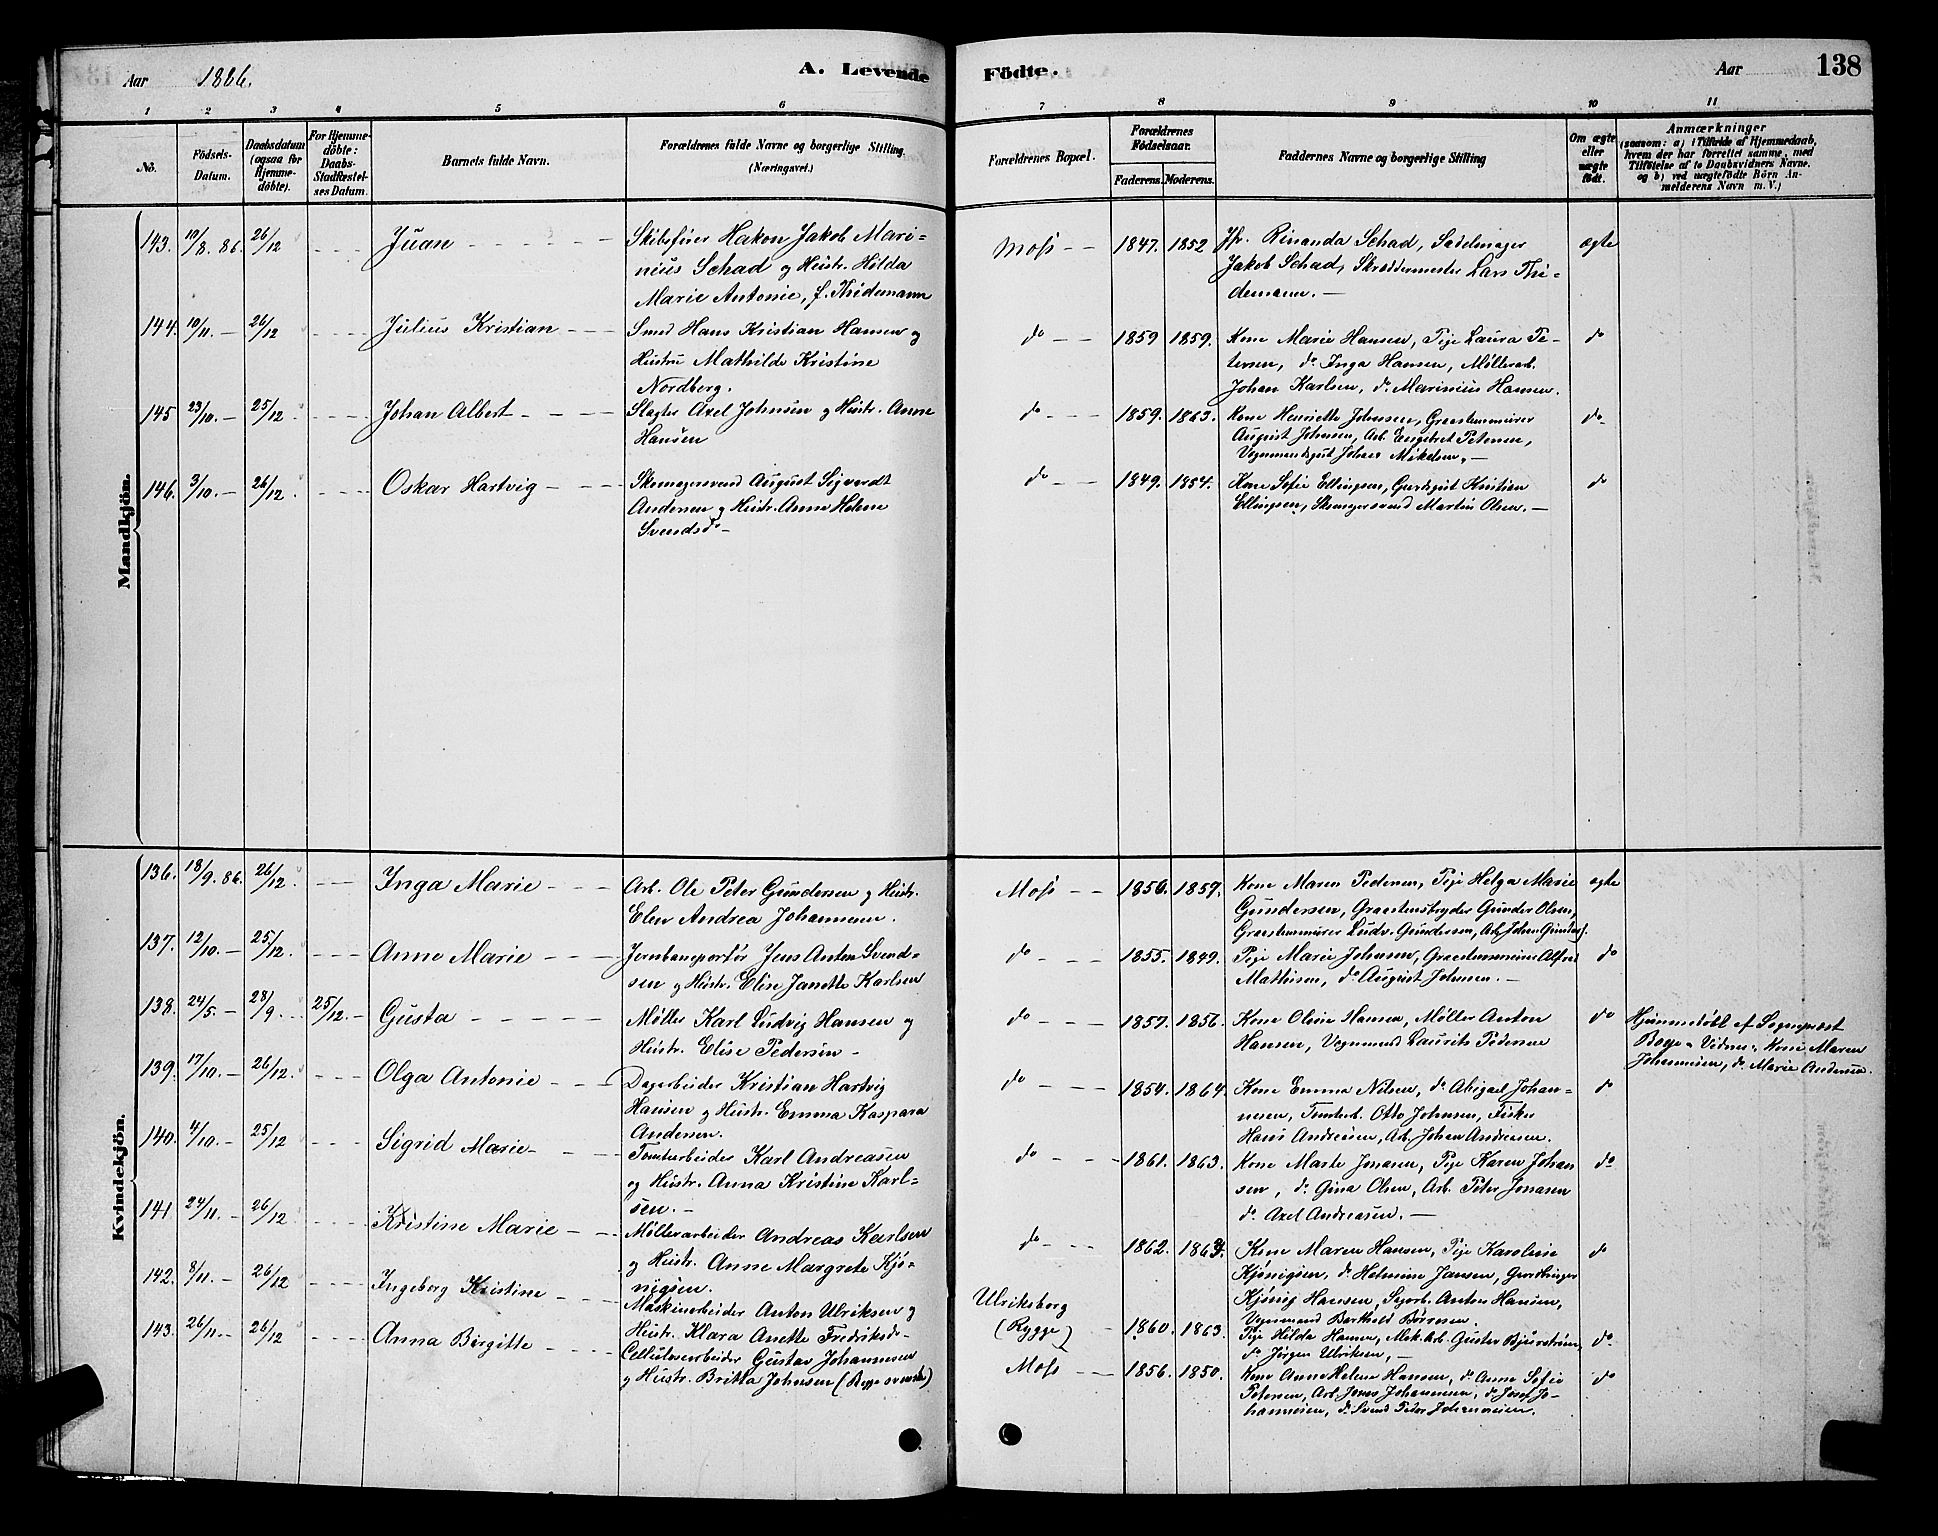 Aar 1886. A. Levende Fødte. Aar 138
1 2 3 4 5 6 7 8 9 10 11
No.
Fødsels-
Datum.
Daabsdatum
(ogsaa for
Hjemme-
døbte).
For Hjemme-
døbte:
Daabs-
Stadfæstel-
ses Datum.
Barnets fulde Navn.
Forældrenes fulde Navne og borgerlige Stilling.
(Næringsvei.)
Forældrenes Bopæl.
Forældrenes
Fødselsaar.
Faderens. Moderens.
Faddernes Navne og borgerlige Stilling
Om ægte
eller
uægte
født.
Anmærkninger
(saasom: a) i Tilfælde af Hjemmedaab,
hvem der har forrettet samme, med
Tilføielse af to Daabsvidners Navne.
og b) ved uægtefødte Börn An-
melderens Navn m. V.)
Mandkjön.
143. 10/8. 86. 26/12 - - - Juan - - - - - -
Skibsfører Hakon Jakob Mari-
nius Schad og Hustr. Hilda
Marie Antonie, f. Thidemann
Moss - - 1847. 1852
Jfr. Rinanda Schad, Sadelmager
Jakob Schad, Skræddermester Lars Thi-
demann. -
ægte
144. 10/11. - 26/12 - - - Julius Kristian - - -
Smed Hans Kristian Hansen og
Hustru Mathilde Kristine
Nordberg.
do - - 1859 1859.
Kone Marie Hansen, Pige Laura Pe-
tersen, do Inga Hansen, Møllerarb.
Johan Karlsen, do Marinius Hansen.
do
145 23/10. - 25/12 - - - Johan Albert - - - -
Slagter Axel Johnsen og Hustr. Anne
Hansen
do - - - 1859. 1863.
Kone Henriette Johnsen, Graastenmurer
August Johnsen, Arb. Engebret Petersen,
Vognmandsgut Johan Mikelsen. -
do
146. 3/10. - 26/12 - - - Oskar Hartvig - - -
Skomagersvend August Sigvardt
Andersen og Hustr. Anne Helene
Svendsdr -
do - - - 1849. 1854.
Kone Sofie Ellingsen, Gaardsgut Kristian
Ellingsen, Skomagersvend Martin Olsen. -
do
Kvindekjön.
136. 18/9. 86. 26/12. - - - Inga Marie - - -
Arb. Ole Peter Gundersen og Hustr.
Elen Andrea Johannesen.
Moss - - 1856. 1857.
Kone Maren Pedersen, Pige Helga Marie
Gundersen, Graastensbryder Gunder Olsen,
Graastenmurer Ludv. Gundersen, Arb. Johan Gunders.
ægte
137. 12/10. - 25/12. - - - Anne Marie - - -
Jernbaneportør Jens Anton Svend-
sen og Hustr. Elise Janette Karlsen
do - - - 1855. 1849.
Pige Marie Johnsen, Graastenmurer Alfred
Mathisen, do August Johnsen. -
do
138. 24/5. - 28/9. - 25/12. - Gusta - - - - -
Møller Karl Ludvig Hansen og
Hustr. Elise Pedersen -
do - - - 1857. 1856.
Kone Oline Hansen, Møller Anton
Hansen, Vognmand Laurits Pedersen
do
Hjemmedøbt af Sognepræst
Boye. Vidner: Kone Maren
Johannesen, do Marie Andersen.
139. 17/10. - 26/12. - - - Olga Antonie - - -
Dagarbeider Kristian Hartvig
Hansen og Hustr. Emma Kaspara
Andersen.
do - - - 1854. 1864.
Kone Emma Nilsen, do Abigael Johan-
nesen, Tomtarb. Otto Johnsen, Fisker
Hans Andreasen, Arb. Johan Andreasen.
do
140. 4/10. - 25/12 - - - Sigrid Marie - - - -
Tomtearbeider Karl Andreasen
og Hustr. Anna Kristine Karl-
sen. -
do - - - 1861. 1863.
Kone Marte Jonasen, Pige Karen Johan
sen, do Gina Olsen, Arb. Peter Jonasen
do Axel Andreasen. -
do
141. 24/11. - 26/12. - - - Kristine Marie - - -
Møllerarbeider Andreas Karlsen
og Hustr. Anne Margrete Kjø-
nigsen.
do - - - 1862. 1863.
Kone Maren Hansen, Pige Karoline
Kjønigsen, do Helmine Jansen, Gaardbruger
Kjønig Hansen, Sagarb. Anton Hansen,
Vognmand Berthold Børresen.
do
142. 8/11. - 26/12 - - - Ingeborg Kristine - - -
Maskinarbeider Anton Ulriksen og
Hustr. Klara Anette Fredriksdr -
Ulriksborg
(Rygge) - 1860. 1863.
Pige Hilda Hansen, Mek. Arb. Gustav Bjurstrøm,
do Jørgen Ulriksen, -
do
143. 26/11. - 26/12 - - - Anna Birgitte - - -
Cellulosearbeider Gustav Johannesen
og Hustr. Britta Johnsen (Begge svenske)
Moss - - 1856. 1850.
Kone Anne Helene Hansen, do Anne Sofie
Petersen, Arb. Jonas Johannesen, do Josef Jo-
hannesen, do Svend Peter Johannesen.
do